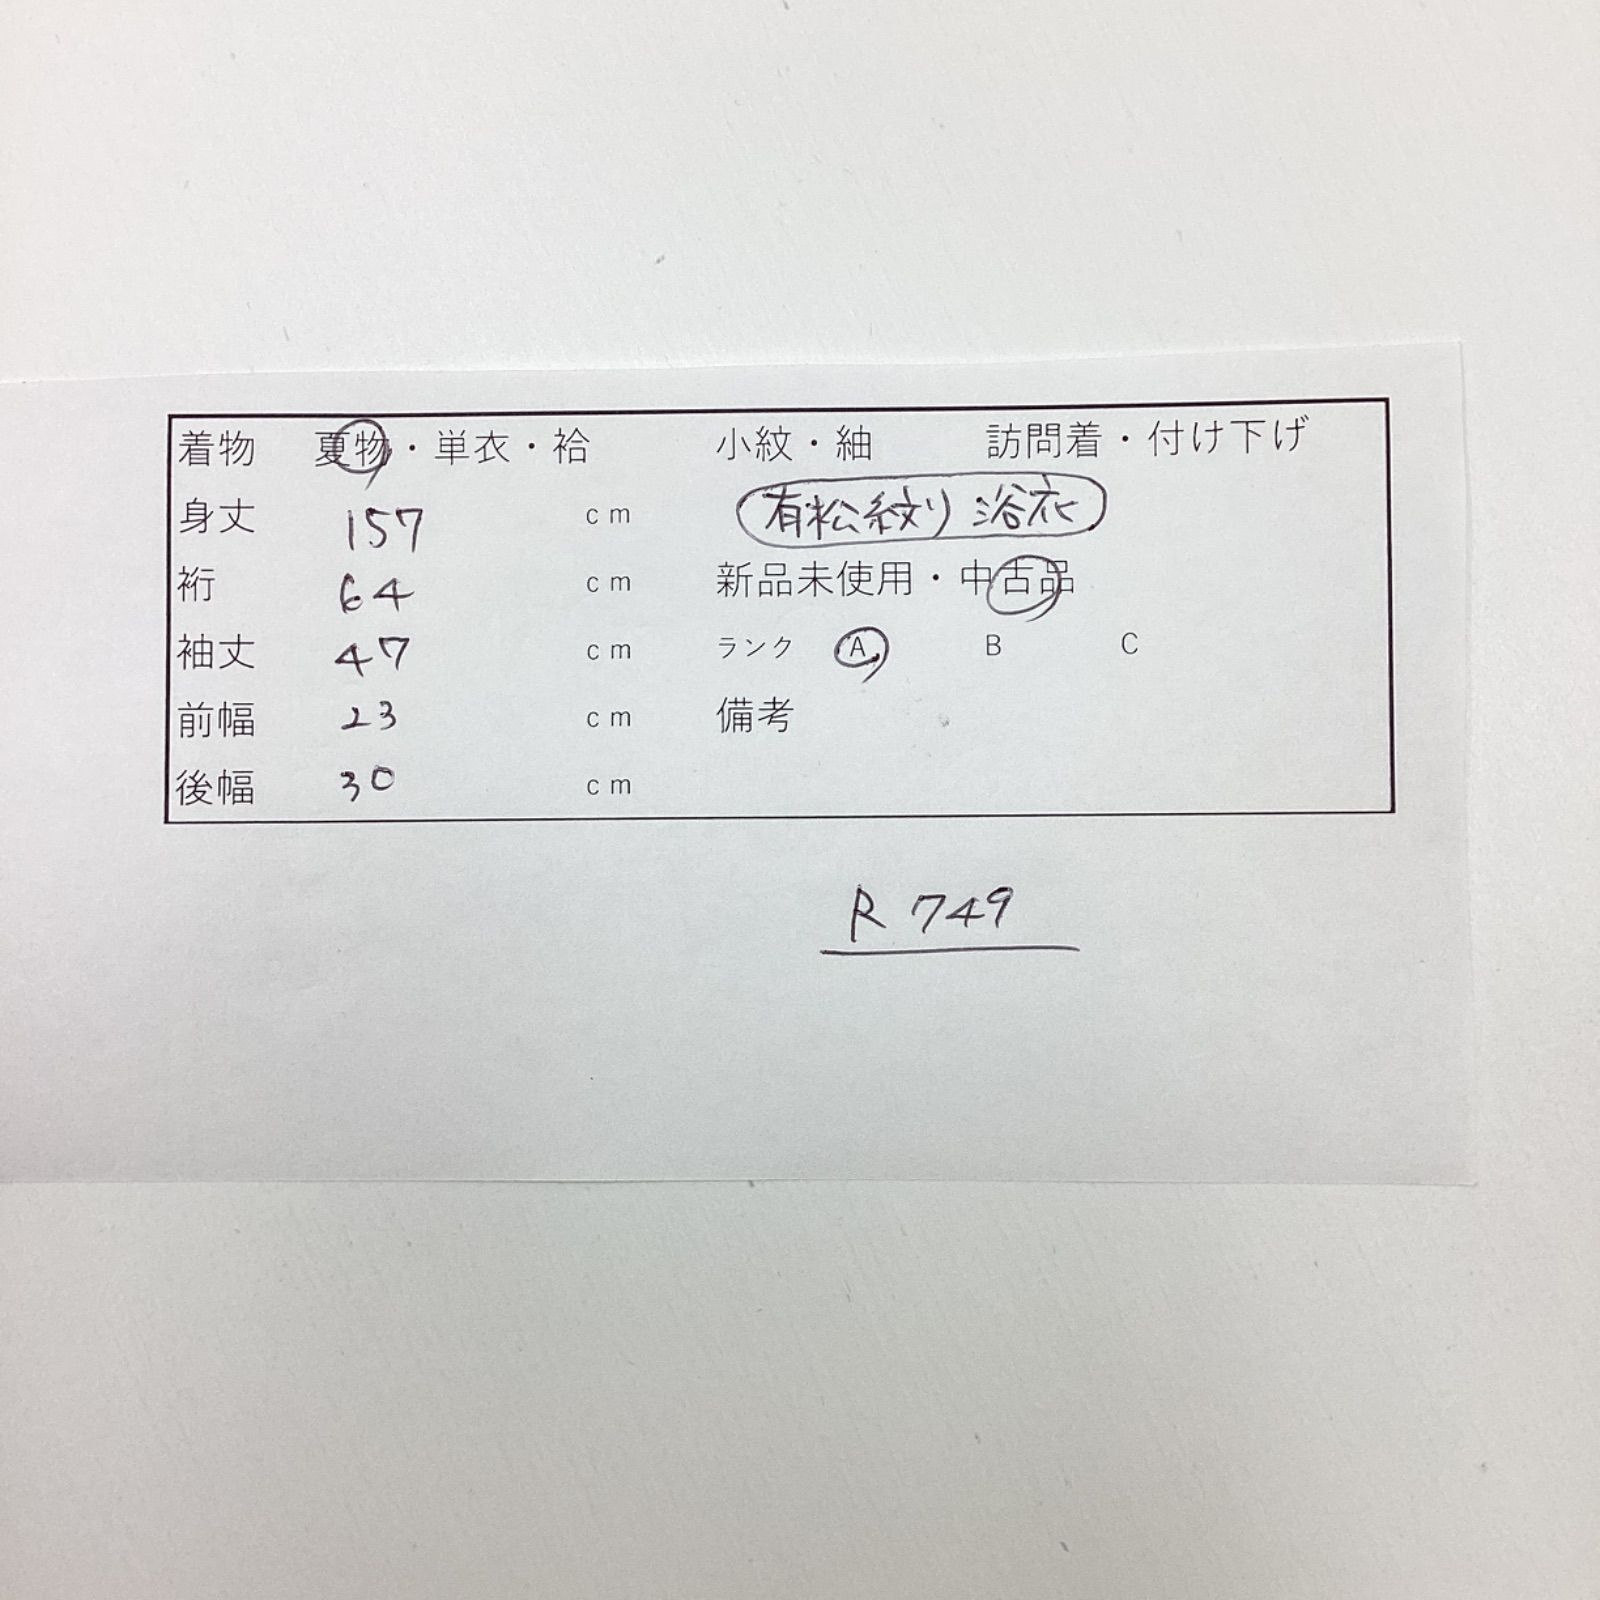 着物 夏物・単衣・袷 小紋・紬 訪問着・付け下げ
身丈 157 cm 有松絞り 浴衣
裄 64 cm 新品未使用・中古品
袖丈 47 cm ランク A B C
前幅 23 cm 備考
後幅 30 cm
R 749